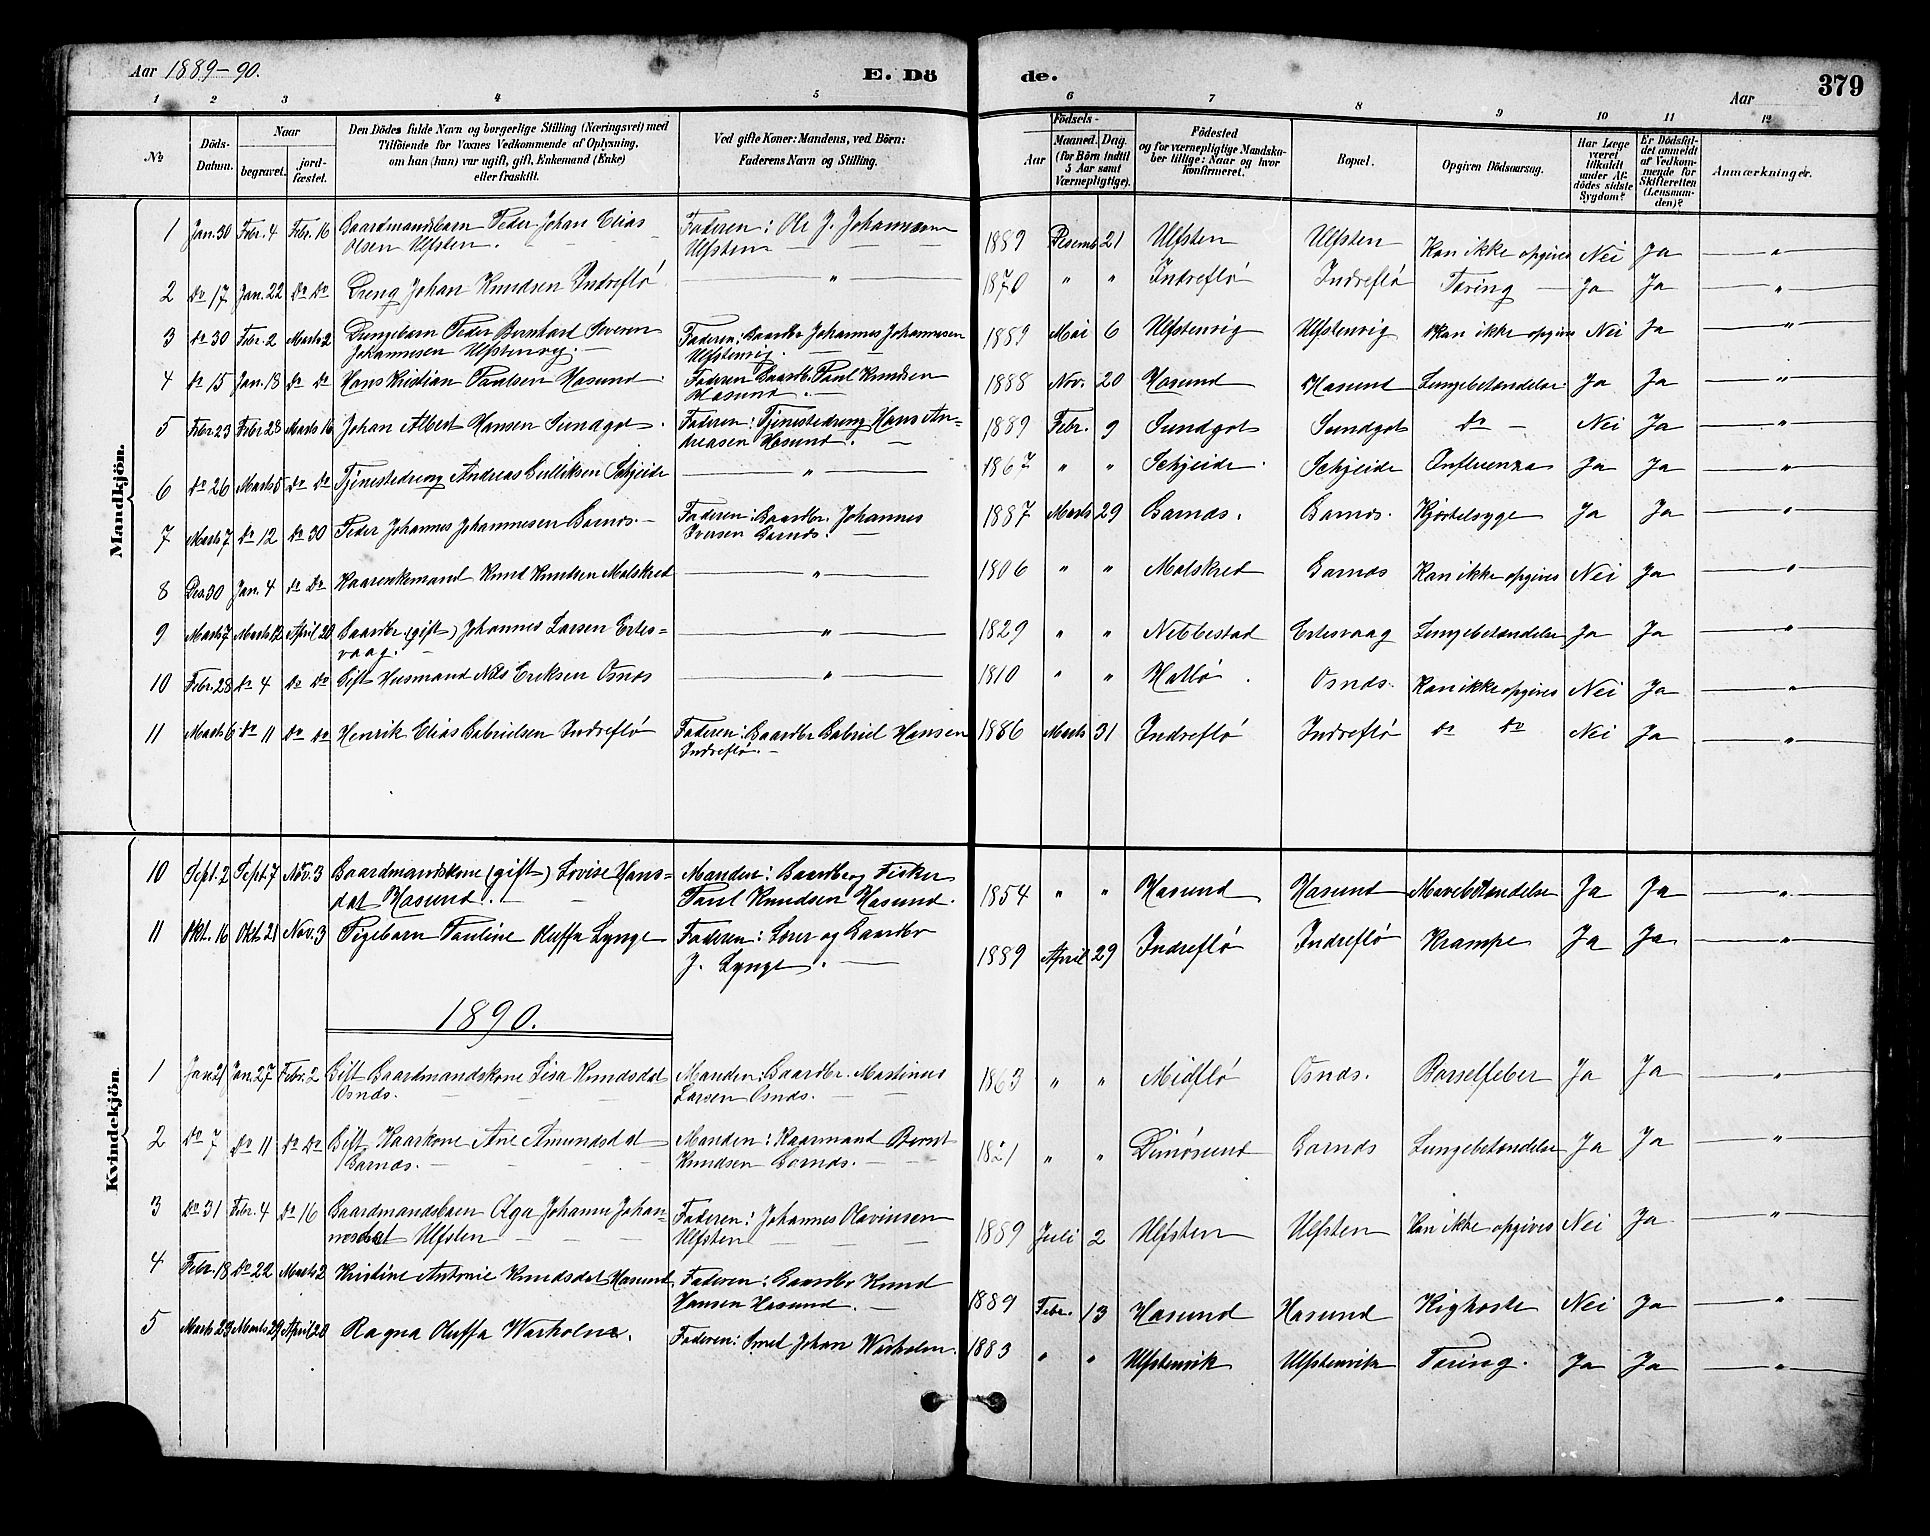 Aar 1889-90. E. Dö de. Aar 379
1 2 3 4 5 6 7 8 9 10 11 12
No Döds-Datum. Naar begravet. jord-fæstet. Den Dödes fulde Navn og borgerlige Stilling (Næringsvei) med Tilföiende for Voxnes Vedkommende af Oplysning, om han (hun) var ugift, gift, Enkemand (Enke) eller fraskilt. Ved gifte Koner: Mandens, ved Börn: Faderens Navn og Stilling. Födsels- Aar Maaned. Dag. (for Börn indtil 5 Aar samt Værnepligtige). Födested og for værnepligtige Mandska-ber tillige: Naar og hvor konfirmeret. Bopæl. Opgiven Dödsaarsag. Har Læge været tilkaldt under Af-dödes sidste Sygdom? Er Dödsfal-det anmeldt af Vedkom-mende for Skifteretten (Lensman-den)? Anmærkninger.
Mandkjön.
1 Jan. 30 Febr. 4 Febr. 16 Gaardmandsbarn Peder Johan Elias Faderen: Ole J. Johannesen 1889 Desemb 21 Ulfsten Ulfsten Kan ikke opgives Nei Ja "
Olsen Ulfsten. Ulfsten
2 Do 17 Jan. 22 Do Do Dreng Johan Knudsen Indreflö " 1870 " " Indreflö Indreflö Tæring Ja Ja "
3 Do 30 Febr. 2 Marts 2 Drengebarn Peder Bernhard Severin Faderen: Gaardbr Johannes Johannesen 1889 Mai 6 Ulfstenvig Ulfstenvig Kan ikke opgives Nei Ja "
Johannesen Ulfstenvig. Ulfstenvig.
4 Do 15 Jan. 18 Do Do Hans Kristian Paulsen Hasund. Faderen Gaardbr. Paul Knudsen 1888 Nov. 20 Hasund Hasund Lungebetændelse Ja Ja "
Hasund.
5 Febr. 23 Febr 28 Marts 16 Johan Albert Hansen Sundgot. Faderen: Tjenestedreng Hans An- 1889 Febr. 9 Sundgot Sundgot Do Nei Ja "
dreasen Hasund.
6 Do 26 Marts 5 Do Do Tjenestedreng Andreas Gulliksen Schjeide " 1867 " " Schjeide. Schjeide Influenza Ja Ja "
7 Marts 7 Do 12 Do 30 Peder Johannes Johannesen Garnæs. Faderen: Gaardbr. Johannes 1887 Marts 29 Garnæs. Garnæs. Kjertelsyge Ja Ja "
Iversen Garnæs.
8 Des. 30 Jan. 4 Do Do Kaarenkemand Knud Knudsen Molskred " 1806 " " Molskred Garnæs Kan ikke opgives Nei Ja "
9 Marts 7 Marts 12 April 20 Gaardbr (gift) Johannes Larsen Ertes- " 1829 " " Nebbestad Ertesvaag Lungebetændelse Ja Ja "
vaag.
10 Febr. 28 Do 4 Do Do Gift Husmand Nils Eriksen Osnæs " 1810 " " Hatlö. Osnæs. Kan ikke opgives Nei Ja "
11 Marts 6 Do 11 Do Do Henrik Elias Gabrielsen Indreflö Faderen: Gaardbr Gabriel Hansen 1886 Marts 31 Indreflö Indreflö Do Do Nei Ja "
Indreflö.
Kvindekjön.
10 Sept. 2 Sept. 7 Nov. 3 Gaardmandskone (gift) Lovise Hans- Manden: Gaardbr og Fisker 1854 " " Hasund Hasund Mavebetændelse Ja Ja "
dat Hasund. Paul Knudsen Hasund.
11 Okt. 16 Okt 21 Nov. 3 Pigebarn Pauline Oluffa Lynge Faderen: Lærer og Gaardbr 1889 April 29 Indreflö Indreflö Krampe Ja Ja "
J. Lynge.
1890.
1 Jan 21 Jan. 27 Febr. 2 Gift Gaardmandskone Lisa Knudsdat Manden: Gaardbr. Martinus 1863 " " Midflö Osnæs. Barselfeber Ja Ja "
Osnæs. Larsen Osnæs.
2 Do 7 Do 11 Do Do Gift Kaarkone Ane Amundsdat Manden: Kaarmand Bernt 1821 " " Dimösund Garnæs Lungebetændelse Ja Ja "
Garnæs. Knudsen Garnæs.
3 Do 31 Febr. 4 Do 16 Gaardmandsbarn Olga Johanne Johan- Faderen: Johannes Olavinsen 1889 Juli 2 Ulfsten Ulfsten Kan ikke opgives Nei Ja "
nesdat Ulfsten Ulfsten
4 Febr. 18 Do 22 Marts 2 Kristine Antonie Knudsdat Hasund Faderen: Gaardbr Knud 1889 Febr. 13 Hasund Hasund Kighoste Nei Ja "
Hansen Hasund.
5 Marts 23 Marts 29 April 20 Ragna Oluffa Warholm. Faderen: Smed Johan Warholm. 1883 " " Ulfstenvik Ulfstenvik Tæring. Ja Ja "